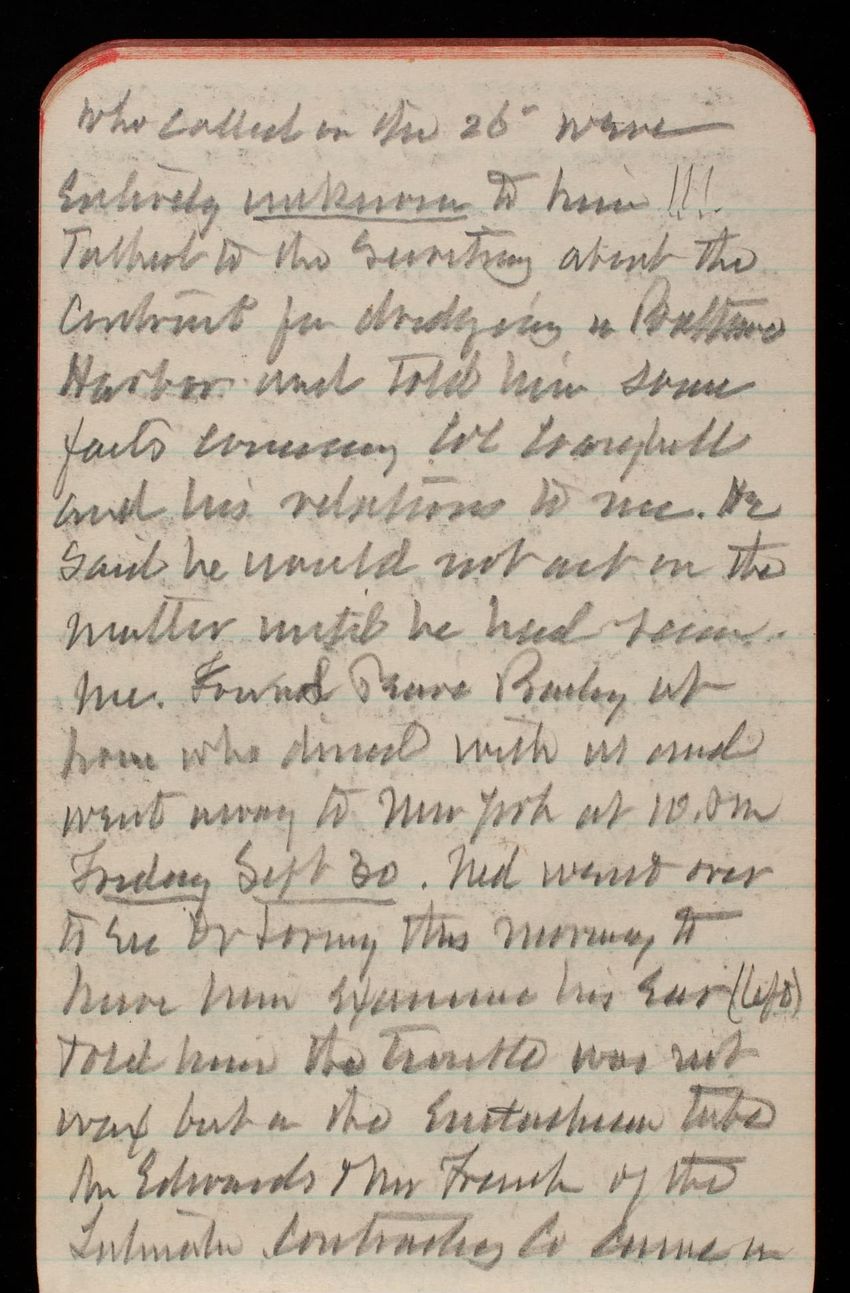 who called on the 26" were
Entirely unknown to him !!!
Talked to the Secretary about the
Contract for dredging in Boston
Harbor and told him some
facts concerning Col
and his relations to me. He
Said he would not act on the
matter until he had seen
me. Found Bailey at
home who dined with us and
went away to New York at 10. Pm
Friday Sept 30. Ned went over
to See Dr Loring this morning to
have him Examine his Ear (left)
Told him the trouble was not
wax but in the Eustachian tube
Edwards & Mr French of the
Contracting Co came in